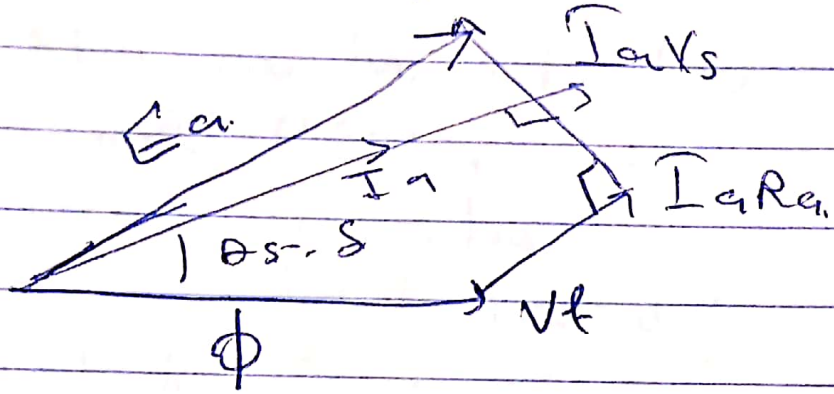 IaXs
Ea
Ia
IaRa
δ
Vt
ϕ